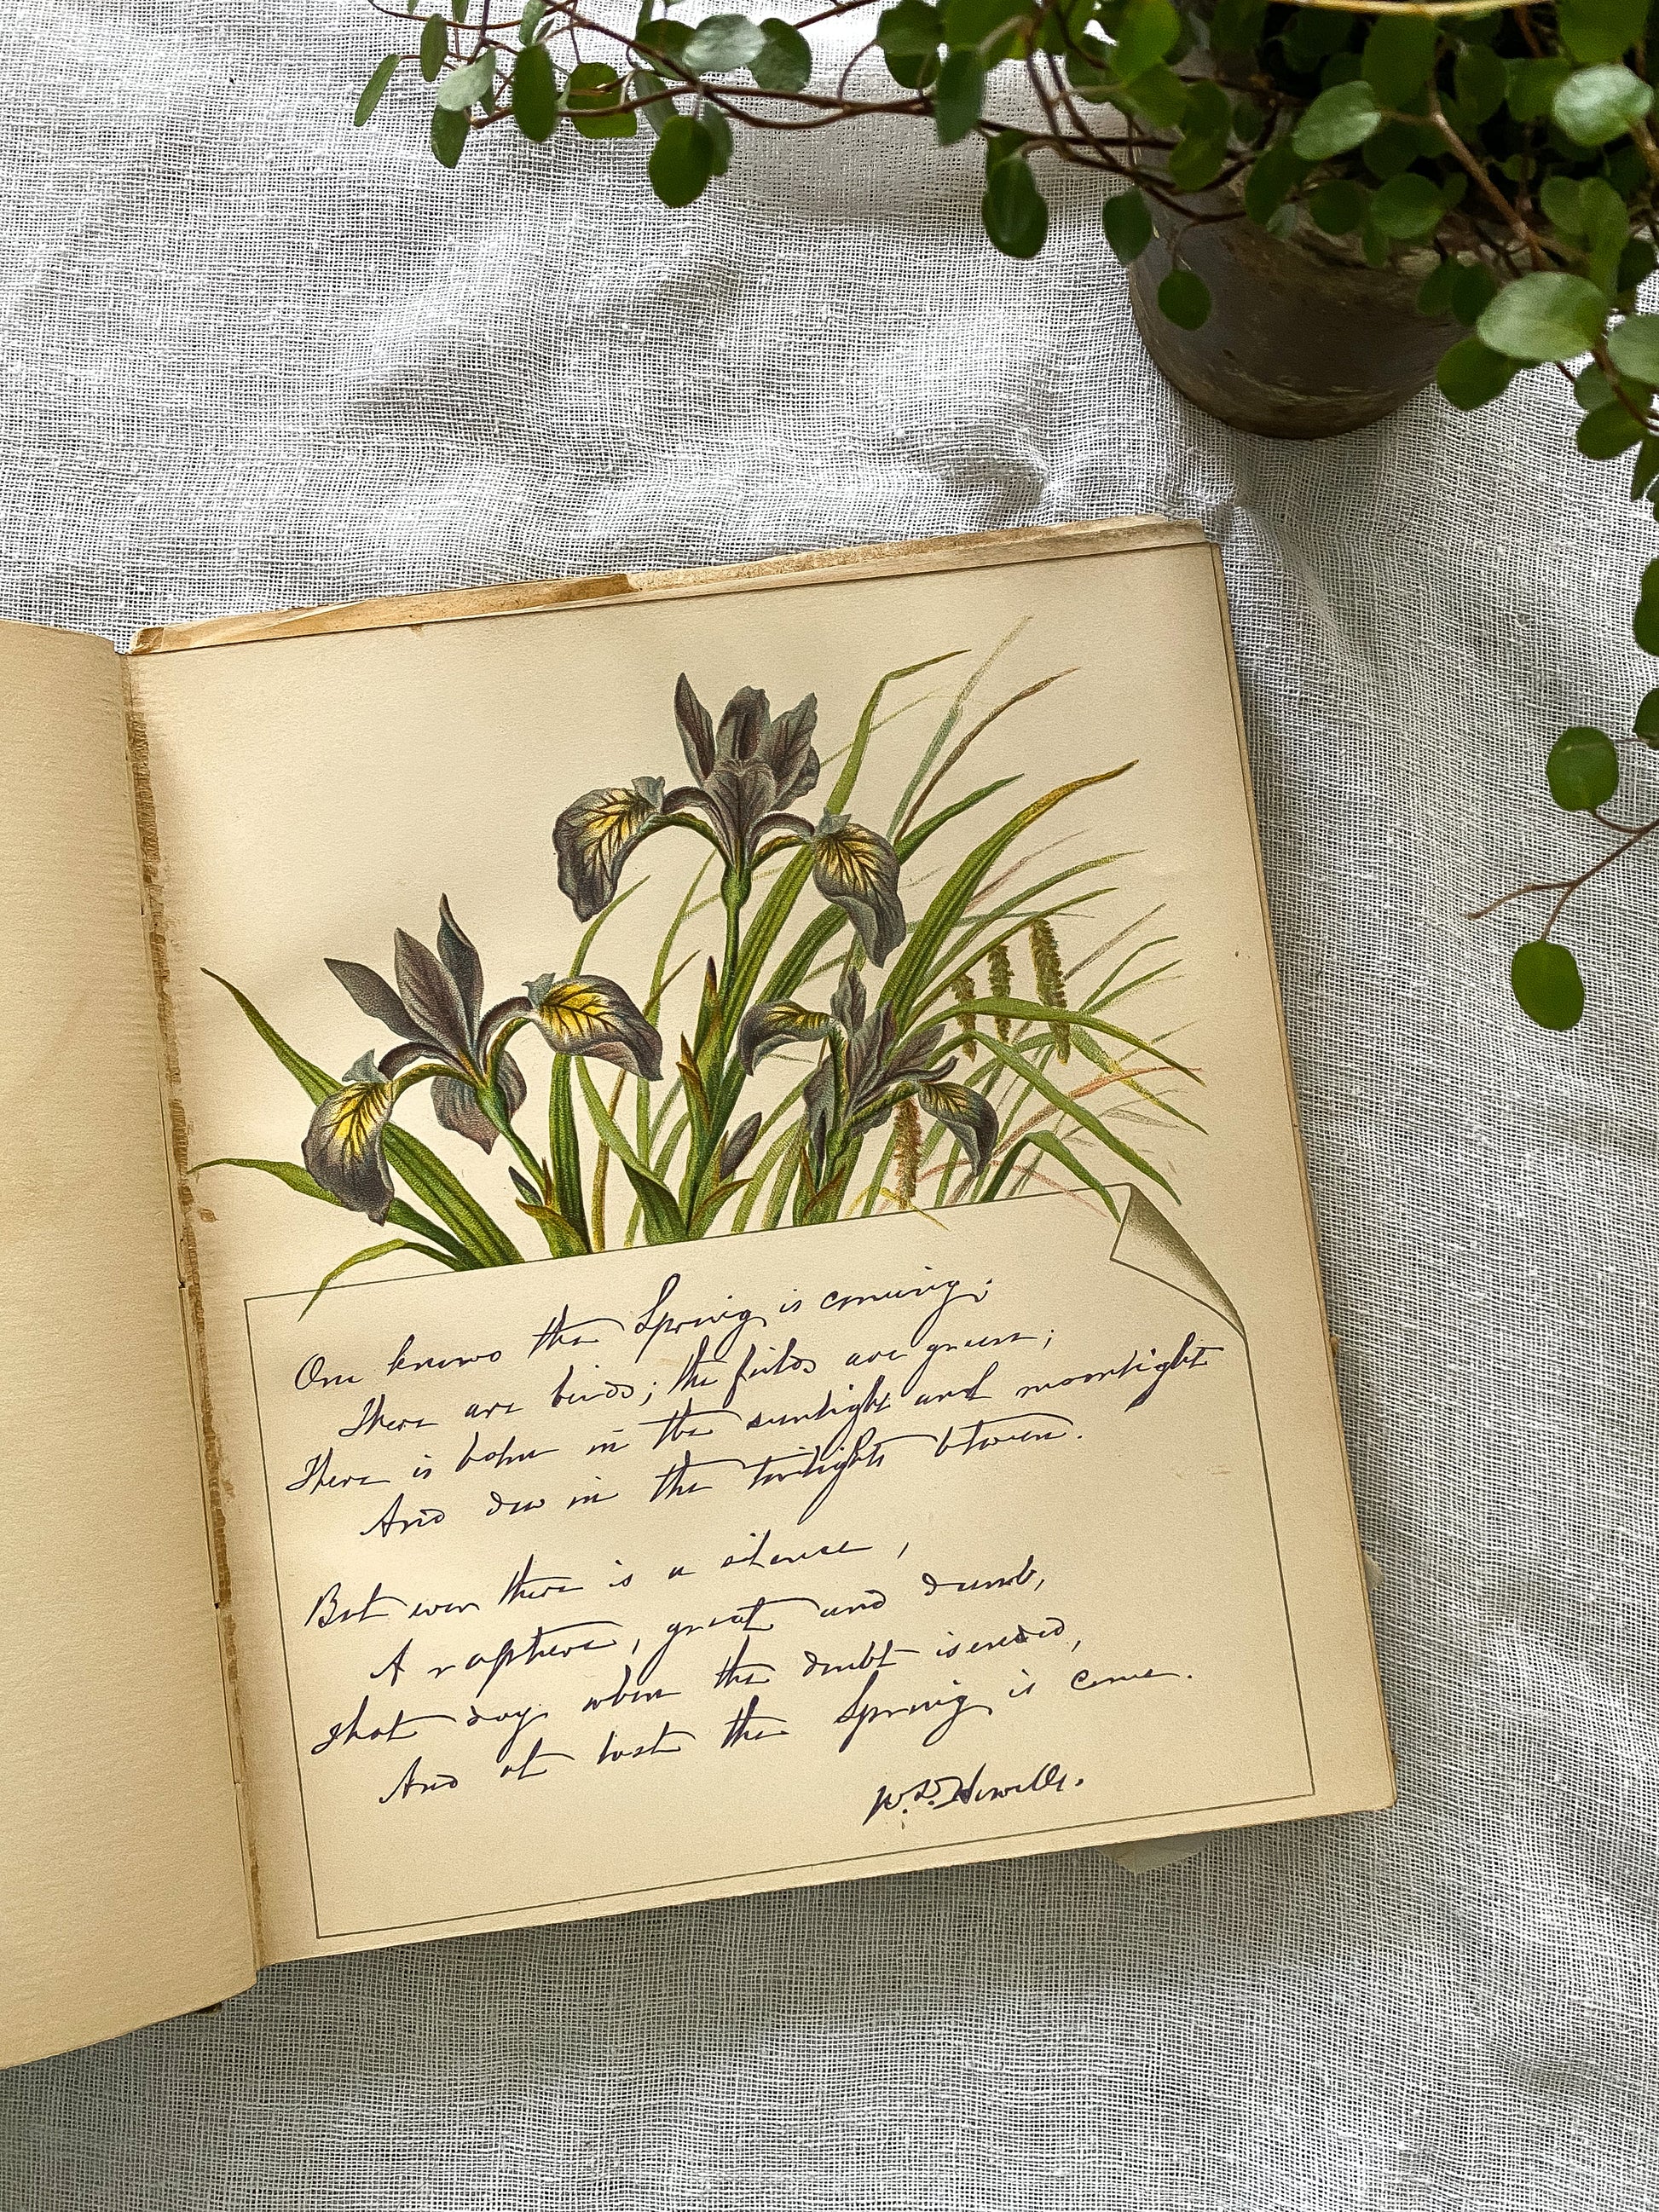 One knows the Spring is coming;
There are birds; the fields are green;
There is balm in the sunlight and moonlight
And dew in the twilights between.
But ever there is a silence,
A rapture, great and dumb,
That day when the doubt is ended,
And at last the Spring is come.
W. D. Howells.